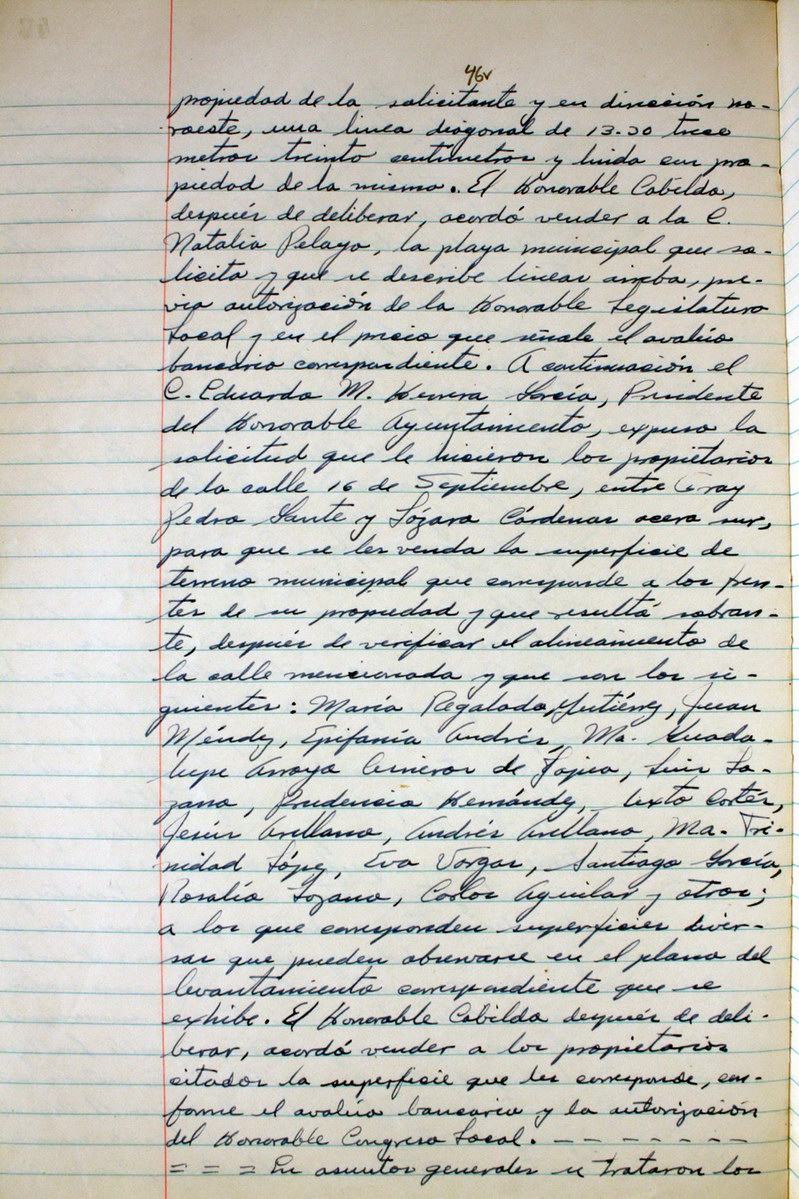 46v
propiedad de la solicitante y en dirección no-
roeste, una linea diagonal de 13.30 trece
metros treinta centimetros y linda con pro-
piedad de la misma. El Honorable Cabildo,
después de deliberar, acordó vender a la C.
Natalia Pelayo, la playa municipal que so-
licita y que se describe lineas arriba, pre-
via autorización de la Honorable Legislatura
Local y en el precio que señale el avalúo
bancario correspondiente. A continuación el
C. Eduardo M. Herrera García, Presidente
del Honorable Ayuntamiento, expuso la
solicitud que le hicieron los propietarios
de la calle 16 de Septiembre, entre Fray
Pedro Gante y Lázaro Cárdenas acera sur,
para que se les venda la superficie de
terreno municipal que corresponde a los fren-
tes de su propiedad y que resultá sobran-
te, después de verificar el alineamiento de
la calle mencionada y que son los si-
guientes: María Regalado Gutiérrez, Juan
Méndez, Epifanía Andrés, Ma. Guada-
lupe Arroyo Cisneros de Tajica, Luis Lo-
zano, Prudencia Hernández, Sixto Cortés,
Jesús Arellano, Andrés Arellano, Ma. Tri-
nidad López, Eva Vargas, Santiago García,
Rosalía Lozano, Carlos Aguilar y otros;
a los que corresponden superficies diver-
sas que pueden observarse en el plano del
levantamiento correspondiente que se
exhibe. El Honorable Cabildo después de deli-
berar, acordó vender a los propietarios
citados la superficie que les corresponde, con-
forme el avalúo bancario y la autorización
del Honorable Congreso Local. - - - - - - -
= = = En asuntos generales se trataron los